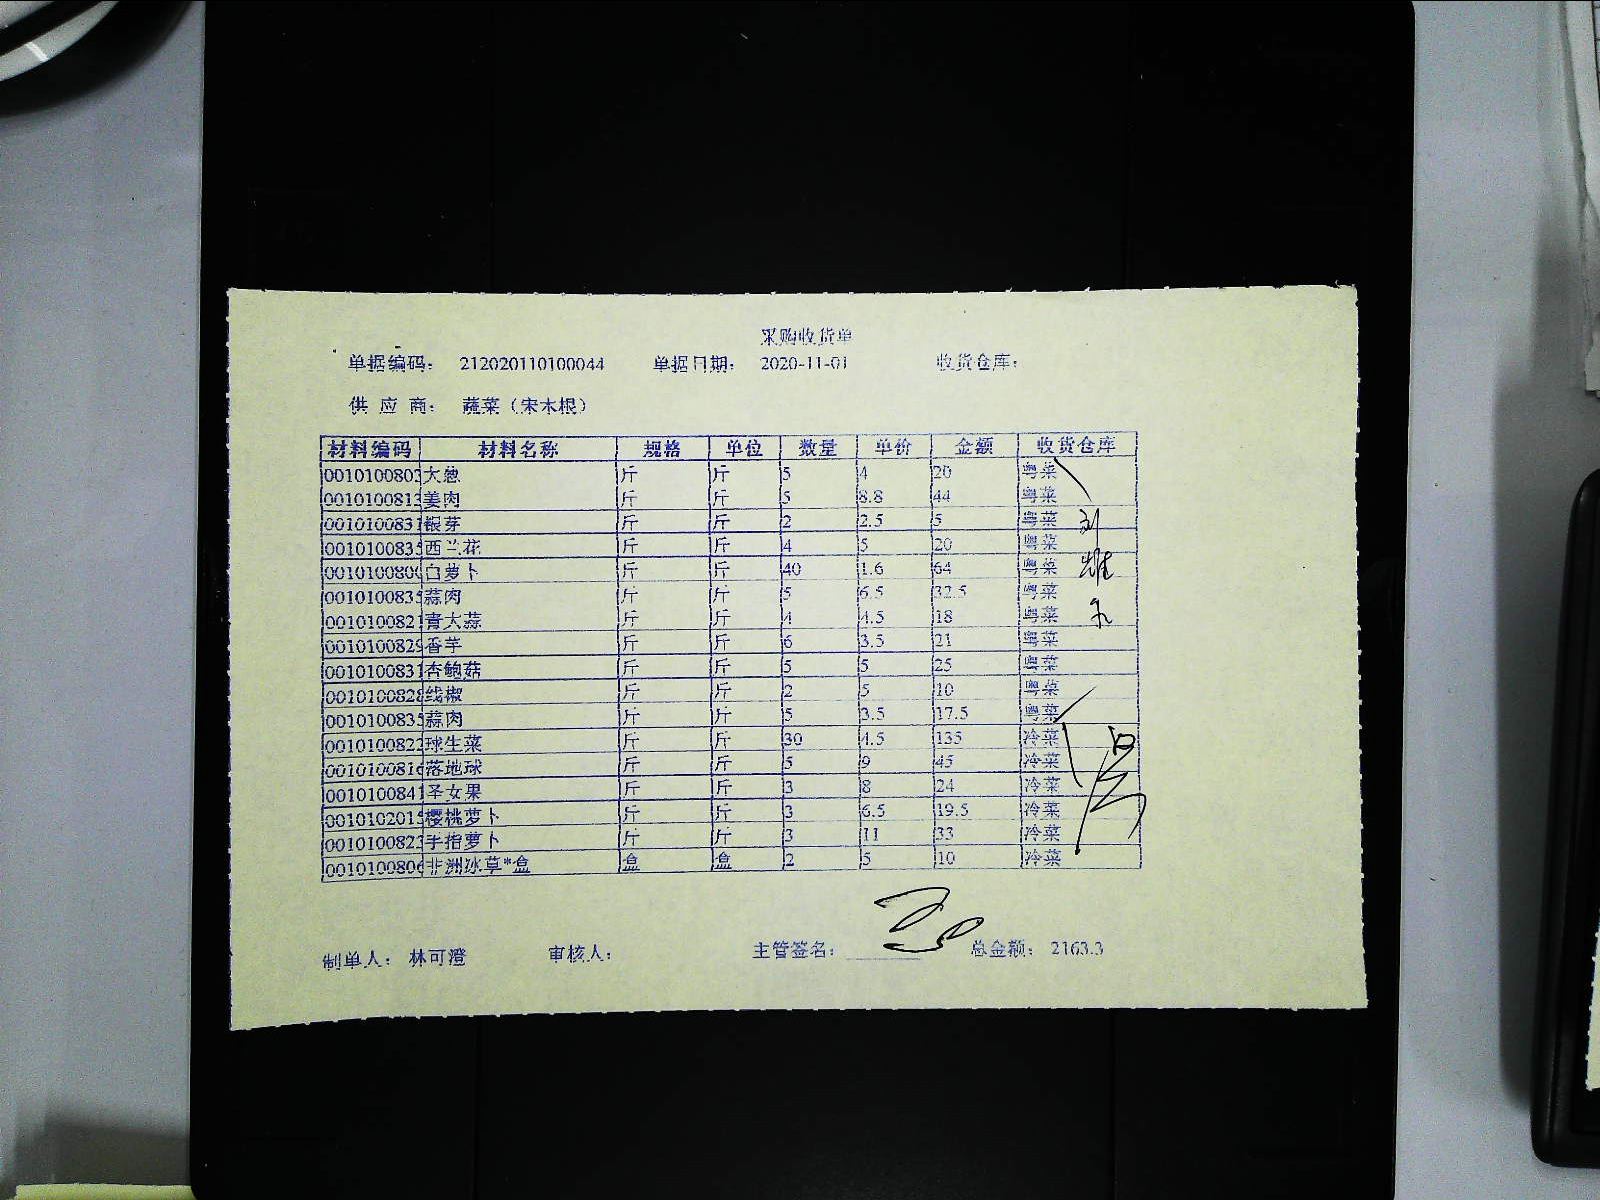 采购收货单
单据编码: 212020110100044 单据日期: 2020-11-01 收货仓库:
供 应 商: 蔬菜(宋木根)
材料编码 材料名称 规格 单位 数量 单价 金额 收货仓库
0010100803 大葱 斤 斤 5 4 20 粤菜
0010100813 姜肉 斤 斤 5 8.8 44 粤菜
0010100831 银芽 斤 斤 2 2.5 5 粤菜
0010100835 西兰花 斤 斤 4 5 20 粤菜
0010100800 白萝卜 斤 斤 40 1.6 64 粤菜
0010100835 蒜肉 斤 斤 5 6.5 32.5 粤菜
0010100821 青大蒜 斤 斤 4 4.5 18 粤菜
0010100829 香芋 斤 斤 6 3.5 21 粤菜
0010100831 杏鲍菇 斤 斤 5 5 25 粤菜
0010100828 线椒 斤 斤 2 5 10 粤菜
0010100835 蒜肉 斤 斤 5 3.5 17.5 粤菜
0010100822 球生菜 斤 斤 30 4.5 135 冷菜
0010100816 落地球 斤 斤 5 9 45 冷菜
0010100841 圣女果 斤 斤 3 8 24 冷菜
0010102015 樱桃萝卜 斤 斤 3 6.5 19.5 冷菜
0010100823 手指萝卜 斤 斤 3 11 33 冷菜
0010100806 非洲冰草*盒 盒 盒 2 5 10 冷菜
制单人: 林可澄 审核人: 主管签名: 总金额: 2163.3